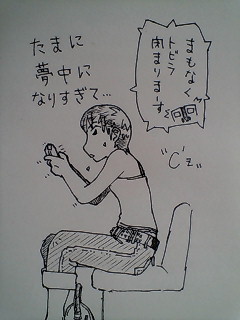 たまに
夢中に
なりすぎて…
まもなく
トビラ
閉まりまーす
"C'z"